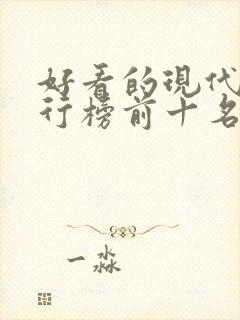 好看的现代
行榜前十名
一淼